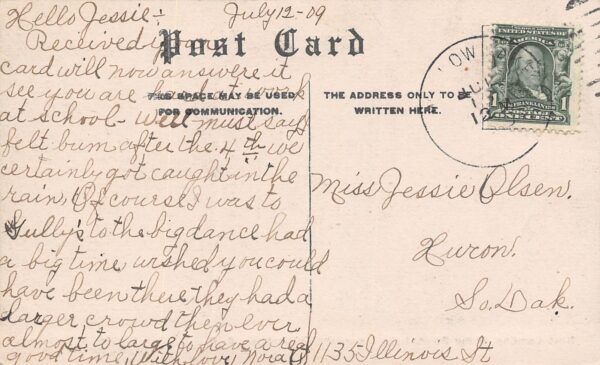 Hello Jessie:- July 12-09
Post Card
Received your
card will now answere it
see you are hard at work
at school - well must say I
THIS SPACE MAY BE USED
FOR COMMUNICATION.
felt bum after the 4th we
certainly got caught in the
rain, Of course I was to
Gully's to the big dance had
a big time wished you could
have been there they had a
larger crowd then ever
almost to large to have a real
good time, With love Nora O.
THE ADDRESS ONLY TO BE
WRITTEN HERE.
UNITED STATES OF
AMERICA
FRANKLIN
1 1
POSTAGE
ONE CENT
Miss Jessie Olsen.
Huron.
So. Dak.
1135 Illinois St